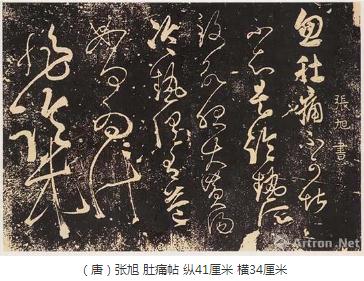 張旭書
忽肚痛不可堪
不知是冷熱所
致欲服大黃湯
冷熱俱有益
如何為計
非臨床
Artron.Net
（唐）张旭 肚痛帖 纵41厘米 横34厘米